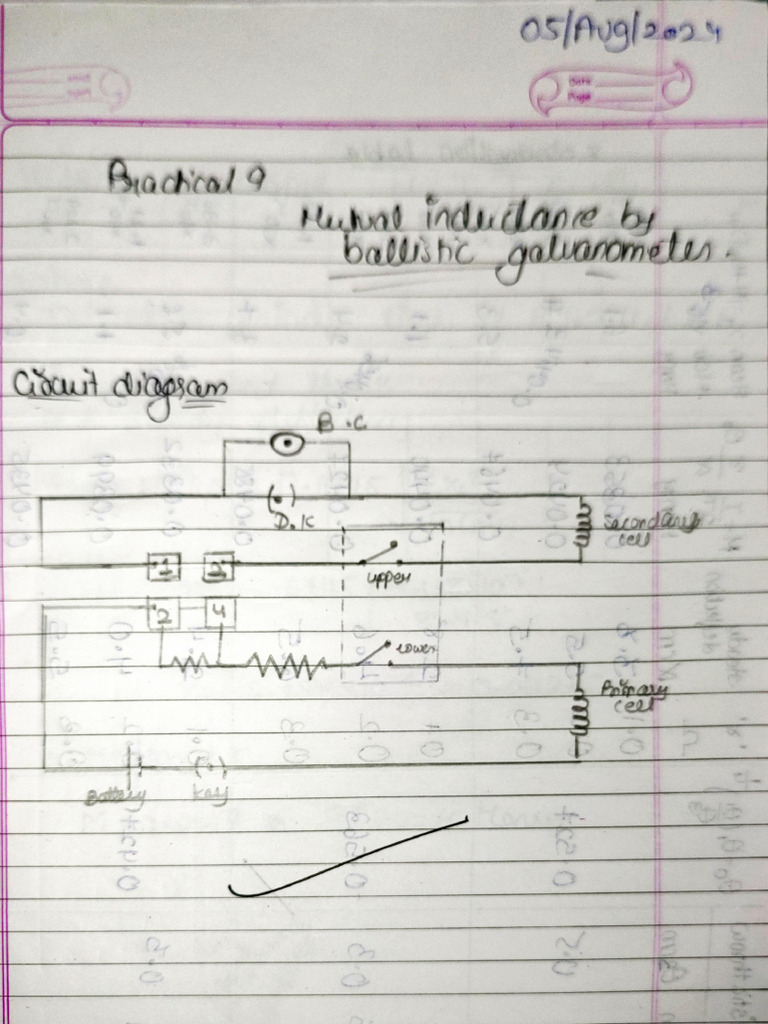 05/Aug/2024
Practical 9
Mutual inductance by
ballistic galvanometer.
Circuit diagram
B.G
D.K
Secondary
cell
1
3
upper
2
4
lower
Primary
cell
Battery
Key